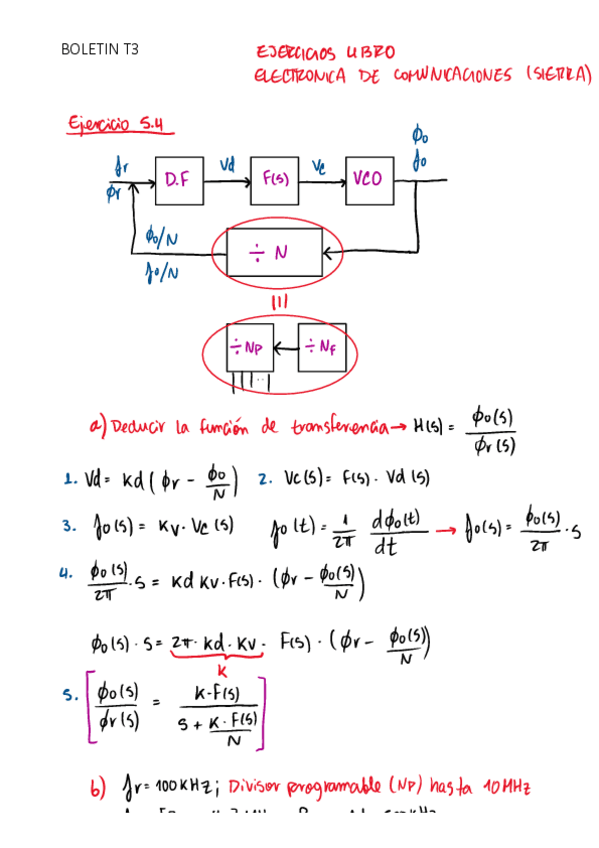 BOLETIN T3
EJERCICIOS LIBRO
ELECTRONICA DE COMUNICACIONES (SIERRA)
Ejercicio 5.4
fr
ϕr
D.F
Vd
F(s)
Vc
VCO
ϕo
fo
ϕo/N
fo/N
÷ N
÷Np
÷NF
a) Deducir la función de transferencia → H(s) = ϕo(s) / ϕr(s)
1. Vd = Kd (ϕr - ϕo/N) 2. Vc(s) = F(s) · Vd (s)
3. fo(s) = Kv · Vc (s) fo (t) = 1/2π dϕo(t)/dt → fo(s) = ϕo(s)/2π · s
4. ϕo(s)/2π · s = Kd Kv · F(s) · (ϕr - ϕo(s)/N)
ϕo(s) · s = 2π · Kd · Kv · F(s) · (ϕr - ϕo(s)/N)
K
5. [ϕo(s)/ϕr(s) = K·F(s) / s + K·F(s)/N]
b) fr = 100KHz ; Divisor programable (Np) hasta 10MHz